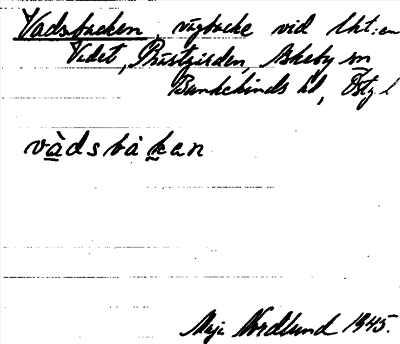 Vadsbacken, vägbacke vid lht:en
Vadet, Prästgården, Askeby sn
Bankekinds hd, Östg l
vàdsbàkan
Maja Nordlund 1945.